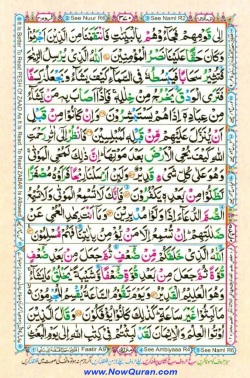 See Nuur R6 ٣٧٠ See Naml R2
اِلٰى قَوْمِهِمْ فَجَآءُوْهُمْ بِالْبَيِّنٰتِ فَانْتَقَمْنَا مِنَ الَّذِيْنَ اَجْرَمُوْا
وَكَانَ حَقًّا عَلَيْنَا نَصْرُ الْمُؤْمِنِيْنَ اَللّٰهُ الَّذِيْ يُرْسِلُ الرِّيٰحَ
فَتُثِيْرُ سَحَابًا فَيَبْسُطُهٗ فِي السَّمَآءِ كَيْفَ يَشَآءُ وَيَجْعَلُهٗ كِسَفًا
فَتَرَى الْوَدْقَ يَخْرُجُ مِنْ خِلٰلِهٖ فَاِذَآ اَصَابَ بِهٖ مَنْ يَّشَآءُ
مِنْ عِبَادِهٖٓ اِذَا هُمْ يَسْتَبْشِرُوْنَ وَاِنْ كَانُوْا مِنْ قَبْلِ
اَنْ يُّنَزَّلَ عَلَيْهِمْ مِّنْ قَبْلِهٖ لَمُبْلِسِيْنَ فَانْظُرْ اِلٰٓى اٰثٰرِ رَحْمَتِ
اللّٰهِ كَيْفَ يُحْيِ الْاَرْضَ بَعْدَ مَوْتِهَا اِنَّ ذٰلِكَ لَمُحْيِ الْمَوْتٰى
وَهُوَ عَلٰى كُلِّ شَيْءٍ قَدِيْرٌ وَلَئِنْ اَرْسَلْنَا رِيْحًا فَرَاَوْهُ مُصْفَرًّا
لَّظَلُّوْا مِنْۢ بَعْدِهٖ يَكْفُرُوْنَ فَاِنَّكَ لَا تُسْمِعُ الْمَوْتٰى وَلَا تُسْمِعُ
الصُّمَّ الدُّعَآءَ اِذَا وَلَّوْا مُدْبِرِيْنَ وَمَآ اَنْتَ بِهٰدِ الْعُمْيِ عَنْ
ضَلٰلَتِهِمْ اِنْ تُسْمِعُ اِلَّا مَنْ يُّؤْمِنُ بِاٰيٰتِنَا فَهُمْ مُّسْلِمُوْنَ
اَللّٰهُ الَّذِيْ خَلَقَكُمْ مِّنْ ضُعْفٍ ثُمَّ جَعَلَ مِنْۢ بَعْدِ ضُعْفٍ
قُوَّةً ثُمَّ جَعَلَ مِنْۢ بَعْدِ قُوَّةٍ ضُعْفًا وَّشَيْبَةً يَخْلُقُ مَا يَشَآءُ
وَهُوَ الْعَلِيْمُ الْقَدِيْرُ وَيَوْمَ تَقُوْمُ السَّاعَةُ يُقْسِمُ الْمُجْرِمُوْنَ
مَا لَبِثُوْا غَيْرَ سَاعَةٍ كَذٰلِكَ كَانُوْا يُؤْفَكُوْنَ وَقَالَ الَّذِيْنَ
اُوْتُوا الْعِلْمَ وَالْاِيْمَانَ لَقَدْ لَبِثْتُمْ فِيْ كِتٰبِ اللّٰهِ اِلٰى يَوْمِ
Faatir A9 See Ambiyaaa R4 See Naml R6
www.NowQuran.com